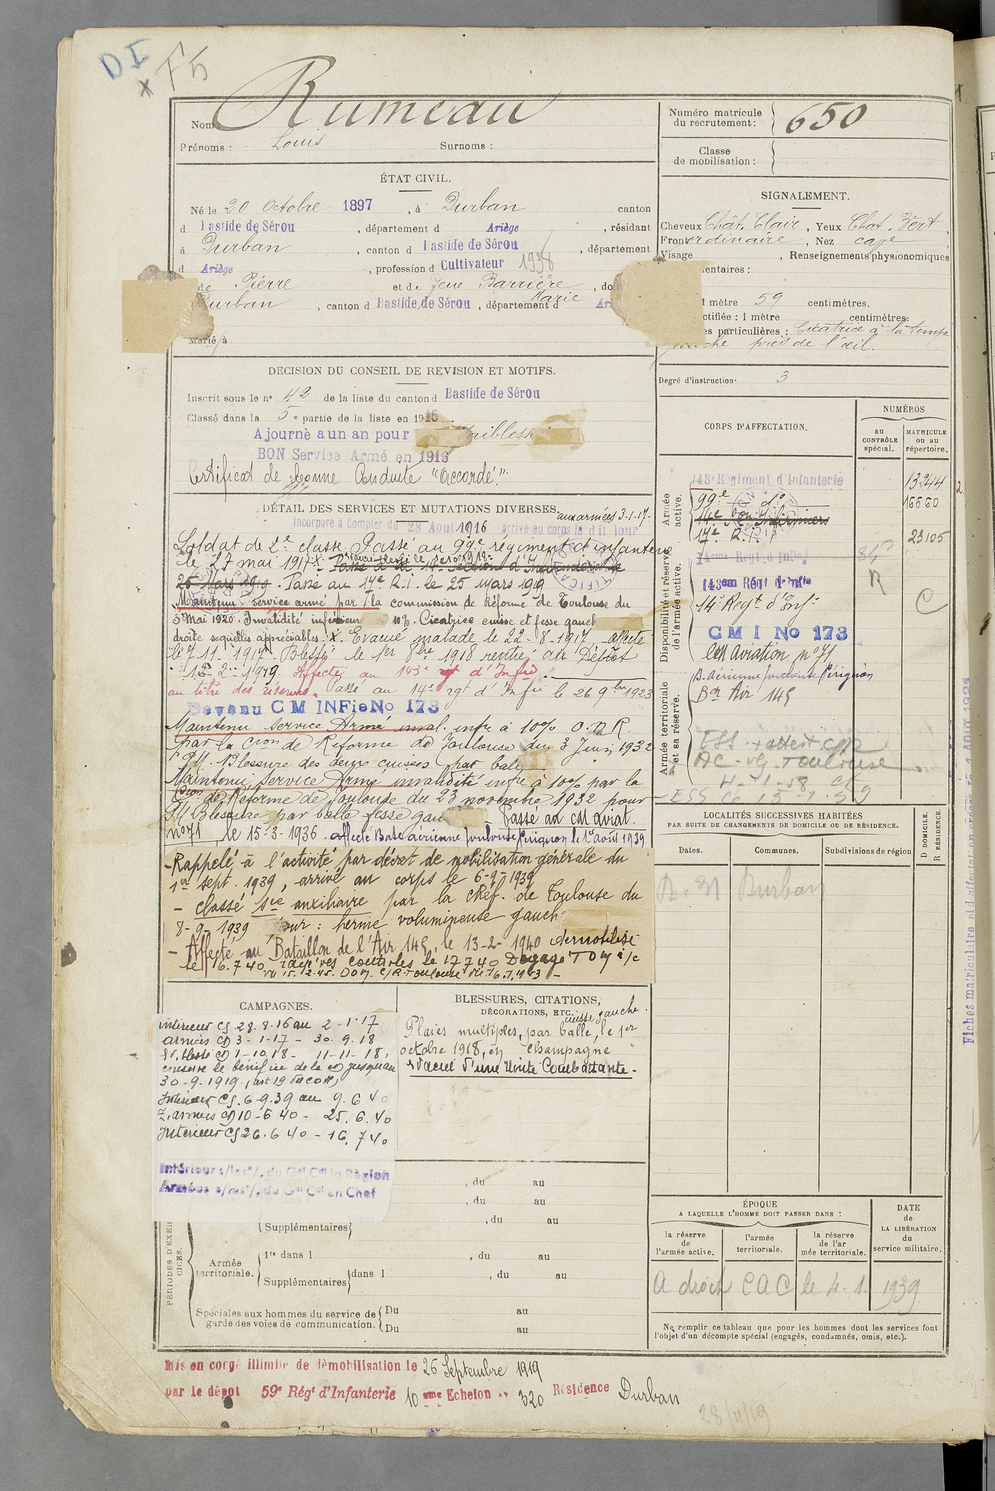 DI
x F5
Nom Rumeau
Prénoms : Louis Surnoms :
Numéro matricule du recrutement : 650
Classe de mobilisation :
ÉTAT CIVIL.
Né le 20 Octobre 1897, à Durban canton
d Bastide de Sérou, département d Ariège, résidant
à Durban, canton d Bastide de Sérou, département
d Ariège, profession d Cultivateur 1938
de Pierre et de Barrière Marie, do
Durban, canton d Bastide de Sérou, département d Ari
Marié à
SIGNALEMENT.
Cheveux Chât. Clair, Yeux Chat. Vert
Front ordinaire, Nez cave
Visage , Renseignements physionomiques
entaires :
1 mètre 59 centimètres.
ctifiée : 1 mètre centimètres.
es particulières : Cicatrice à la tempe
gauche près de l'œil.
Degré d'instruction : 3
DÉCISION DU CONSEIL DE REVISION ET MOTIFS.
Inscrit sous le n° 42 de la liste du canton d Bastide de Sérou
Classé dans la 5e partie de la liste en 1915.
Ajourné à un an pour faibless
BON Service Armé en 1916
Certificat de Bonne Conduite "Accordé".
CORPS D'AFFECTATION.
NUMÉROS
au CONTRÔLE spécial.
MATRICULE ou au répertoire.
Armée active.
Disponibilité et réserve de l'armée active.
Armée territoriale et sa réserve.
143e Régiment d'Infanterie 13244
99e do 16660
14e Son Infirmiers
17e R.I. 23105
14eme Regt d'Infie
143em Régt d'Infie
14e Regt d'Inf.
CMI No 173
Cent Aviation no 71
B. aérienne Toulouse Pérignon
Bon Air 145
DÉTAIL DES SERVICES ET MUTATIONS DIVERSES. aux armées 3-1-17.
Incorporé à Compter du 28 Aout 1916 arrivé au corps le dit jour
Soldat de 2e classe. Passé au 99e régiment d'infanterie
le 27 mai 1917
26 Mars 1919. Passé au 17e R.I. le 25 mars 1919
Maintenu service armé par la commission de Réforme de Toulouse du
5 Mai 1920. Invalidité inférieur 10%. Cicatrice cuisse et fesse gauch
droite sequelles appréciables. X. Evacué malade le 22-8-1917. affecté
le 7 11-1917. Blessé le 1er 8bre 1918 rentré au Dépôt
13-2-1919. Affecté au 143e rgt d'Infie
au titre des réserves. Passé au 14e rgt d'Infie le 26 9bre 1923
Devenu CM INFie No 173
Maintenu service Armé inval. infre à 10% O.D.R.
par la Cion de Réforme de Toulouse du 3 Juin 1932
P.M. Blessure des deux cuisses par balle
Maintenu service Armé invalidité infre à 10% par la
Cion de Réforme de Toulouse du 23 novembre 1932 pour
Blessure par balle fesse gau Passé au Cent Aviat.
no 71, le 15-3-1936. affecté Base aérienne Toulouse Pérignon le 1er Août 1939
- Rappelé à l'activité par décret de mobilisation générale du
1er sept. 1939, arrivé au corps le 6-9-1939
- classé Sce auxiliaire par la CRéf. de Toulouse du
8-9-1939 our : hernie volumineuse gauch
- Affecté au Bataillon de l'Air 145, le 13-2-1940 démobilisé
le 16.7.40
LOCALITÉS SUCCESSIVES HABITÉES
PAR SUITE DE CHANGEMENTS DE DOMICILE OU DE RÉSIDENCE.
Dates. Communes. Subdivisions de région D DOMICILE. R RÉSIDENCE.
Durban
CAMPAGNES.
Intérieur CS 28.8.16 au 2-1-17
armées CD 3-1-17 - 30.9.18
Bt. blessé CD 1-10.18 - 11-11-18,
conserve le bénéfice de la CD jusqu'au
30-9-1919
Intérieur CS. 6-9-39 au 9.6 40
Z. armées CD 10-6 40 - 25.6.40
Intérieur CS 26.6 40 - 16.7 40
Intérieur s/res°/. du Gal Ct la Région
Armées s/res°/. du Gal Ct en Chef
BLESSURES, CITATIONS,
DÉCORATIONS, ETC.
cuisse gauche.
Plaies multiples, par balle, le 1er
octobre 1918, en Champagne
d'une Unité Combattante -
PÉRIODES D'EXERCICES.
, du au
, du au
Supplémentaires , du au
Armée territoriale. 1re dans l , du au
Supplémentaires dans l , du au
Spéciales aux hommes du service de garde des voies de communication. Du au
Du au
ÉPOQUE
A LAQUELLE L'HOMME DOIT PASSER DANS :
la réserve de l'armée active.
l'armée territoriale.
la réserve de l'armée territoriale.
DATE de LA LIBÉRATION du service militaire.
A droit CAC le 4-1-1939
Ne remplir ce tableau que pour les hommes dont les services font l'objet d'un décompte spécial (engagés, condamnés, omis, etc.).
Mis en congé illimité de démobilisation le 26 Septembre 1919
par le dépot 59e Régt d'Infanterie 10 eme Echelon n° 320 Résidence Durban
28/11/19